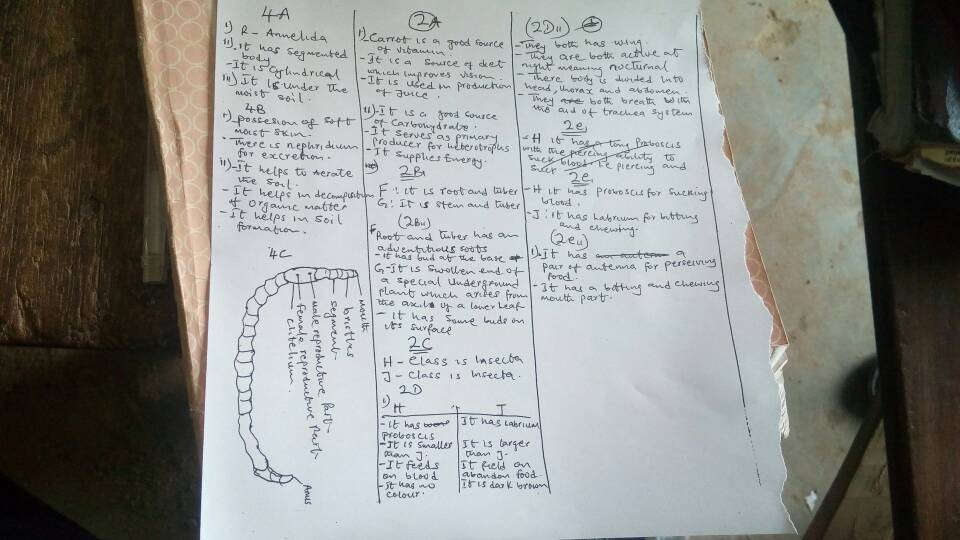 4A
i) R - Annelida
ii) - It has segmented
body
- It is cylindrical
iii) It is under the
moist soil.
4B
i) possesion of soft
moist skin.
- There is nephridium
for excretion.
ii) - It helps to aerate
the soil.
- It helps in decomposition
of organic matter
- It helps in soil
formation.
4C
mouth
bristles
segment
male reproductive part
female reproductive part
clitelium.
Anus
2A
i) Carrot is a good source
of vitamin.
- It is a source of diet
which improves vision.
- It is used in production
of juice.
ii) - It is a good source
of Carbohydrate.
- It serves as primary
producer for heterotrophs
- It supplies Energy.
2B
F: it is root and tuber
G: It is stem and tuber
(2Bii)
F Root and tuber has an
adventitious roots
- it has bud at the base
G - It is swollen end of
a special underground
plant which arises from
the axil of a lower leaf
- it has some buds on
its surface
2C
H - Class is Insecta
J - Class is Insecta.
2D
i)
H J
- it has
proboscis
- It is smaller
than J.
- It feeds
on blood
- It has no
colour.
It has labrium
It is larger
than J.
It field on
abandon food.
It is dark brown
(2Dii)
- They both has wing.
- They are both active at
night meaning nocturnal
- There body is divided into
head, thorax and abdomen.
- They are both breath with
the aid of trachea system
2e
- H it has a long proboscis
with the piercing ability to
suck blood i.e piercing and
suck
2e
- H it has provoscis for sucking
blood.
- J: it has labrium for bitting
and chewing.
(2eii)
i) - It has a
pair of antenna for perseiving
food.
- It has a bitting and chewing
mouth part.